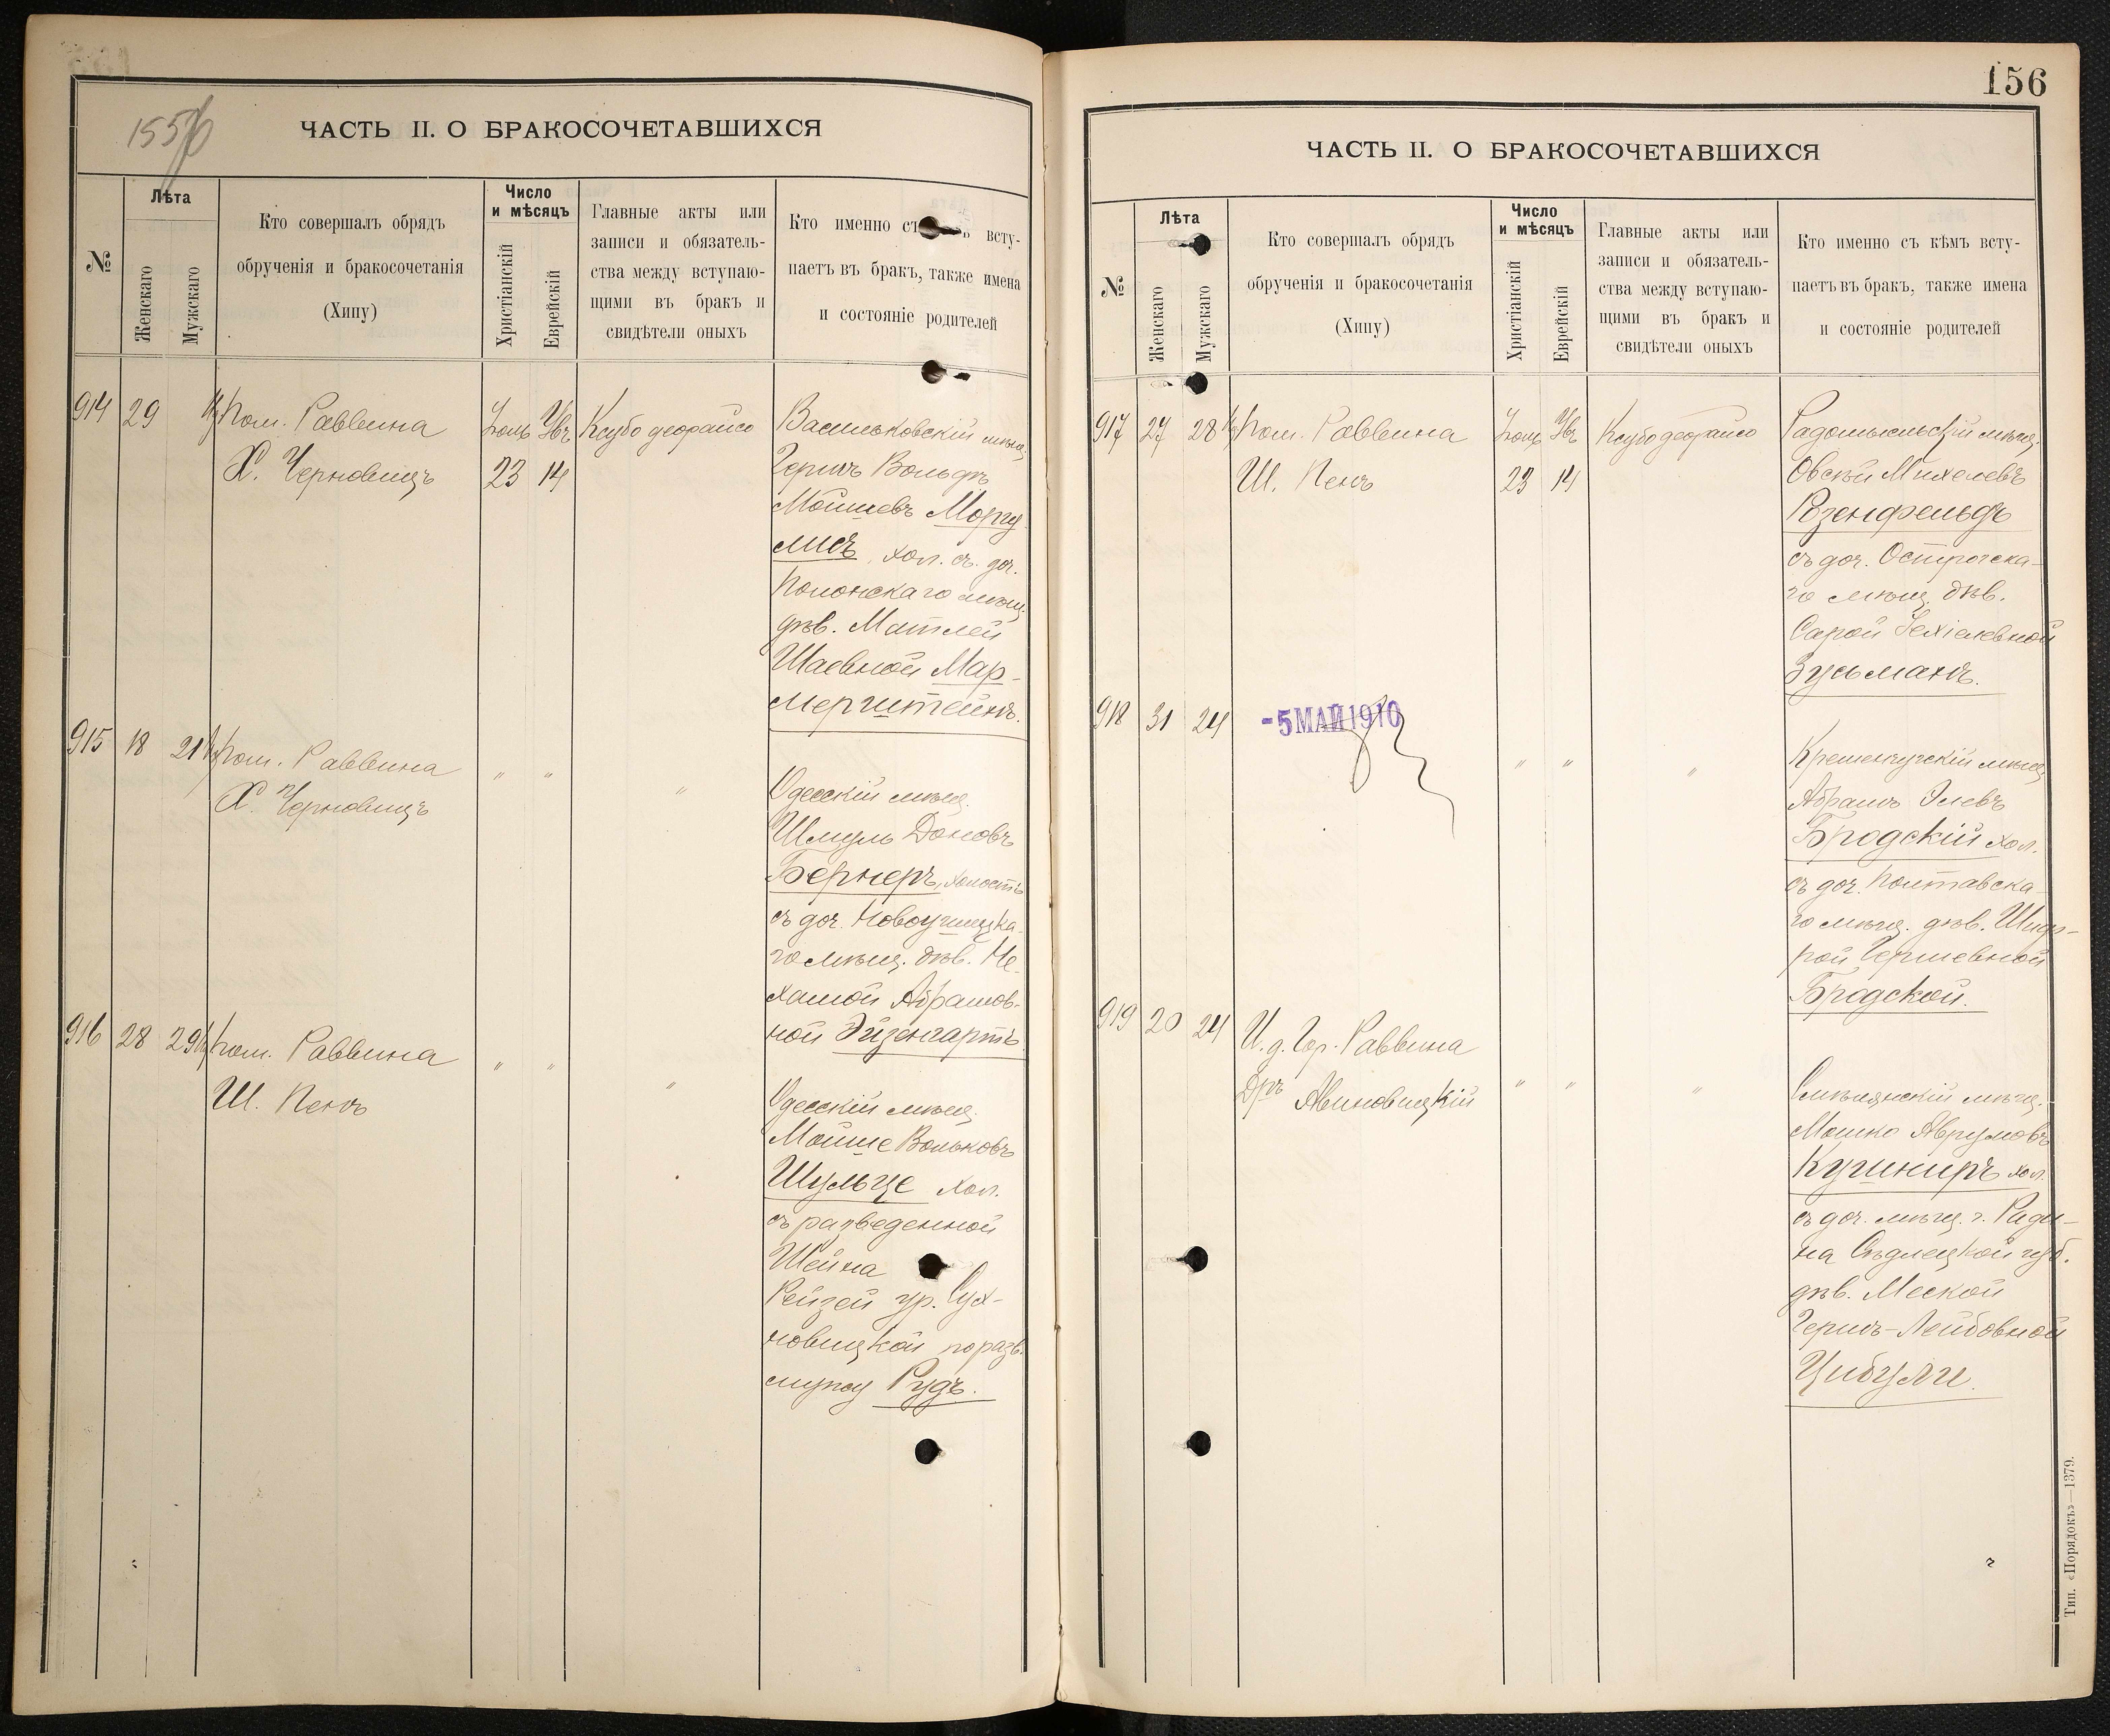 155/6
ЧАСТЬ II. О БРАКОСОЧЕТАВШИХСЯ
№
Лѣта
Женскаго
Мужскаго
Кто совершалъ обрядъ
обрученія и бракосочетанія
(Хипу)
Число
и мѣсяцъ
Христіанскій
Еврейскій
Главные акты или
записи и обязатель-
ства между вступаю-
щими въ бракъ и
свидѣтели оныхъ
Кто именно съ всту-
паетъ въ бракъ, также имена
и состояніе родителей
914 29 Пом. Раввина
Х. Черновицъ
23 14
Васильковскій мѣщ.
Гершъ Вольфъ
Мойшевъ Моргу
лисъ, хол. съ доч.
Полонскаго мѣщ.
дѣв. Матлей
Шаевной Мар-
мерштейнъ.
915 18 21 Пом. Раввина " " "
Х. Черновицъ
Одесскій мѣщ.
Шмуль Доновъ
Бернеръ, холостъ
съ доч. Новоушицка-
го мѣщ. дѣв. Не-
хамой Абрамов-
ной Эйзенгартъ
916 28 29 Пом. Раввина " " "
Ш. Пенъ
Одесскій мѣщ.
Мойше Вольковъ
Шульце хол.
съ разведенной
Шейна
Рейзей ур. Сух-
новицкой по разв.
мужу Рудъ.
156
ЧАСТЬ II. О БРАКОСОЧЕТАВШИХСЯ
№
Лѣта
Женскаго
Мужскаго
Кто совершалъ обрядъ
обрученія и бракосочетанія
(Хипу)
Число
и мѣсяцъ
Христіанскій
Еврейскій
Главные акты или
записи и обязатель-
ства между вступаю-
щими въ бракъ и
свидѣтели оныхъ
Кто именно съ кѣмъ всту-
паетъ въ бракъ, также имена
и состояніе родителей
917 27 28 Пом. Раввина
Ш. Пенъ
23 14
Радомысльскій мѣщ.
Овсѣй Михелевъ
Розенфельдъ
съ доч. Острогска-
го мѣщ. дѣв.
Сарой Іехіелевной
Зусьманъ.
918 31 24 -5 МАЙ 1910
" " "
Кременчугскій мѣщ.
Абрамъ Элевъ
Бродскій хол.
съ доч. Полтавска-
го мѣщ. дѣв. Шиф-
рой Гершевной
Бродской.
919 20 24 И. д. Гор. Раввина
Дръ Авиновицкій " " "
мѣщ.
Мошко Аврумовъ
Кушниръ хол.
съ доч. мѣщ. г. Ради-
на Сѣдлецкой губ.
дѣв. Меской
Гершъ-Лейбовной
Цибули.
Тип. «Порядокъ»—1379.